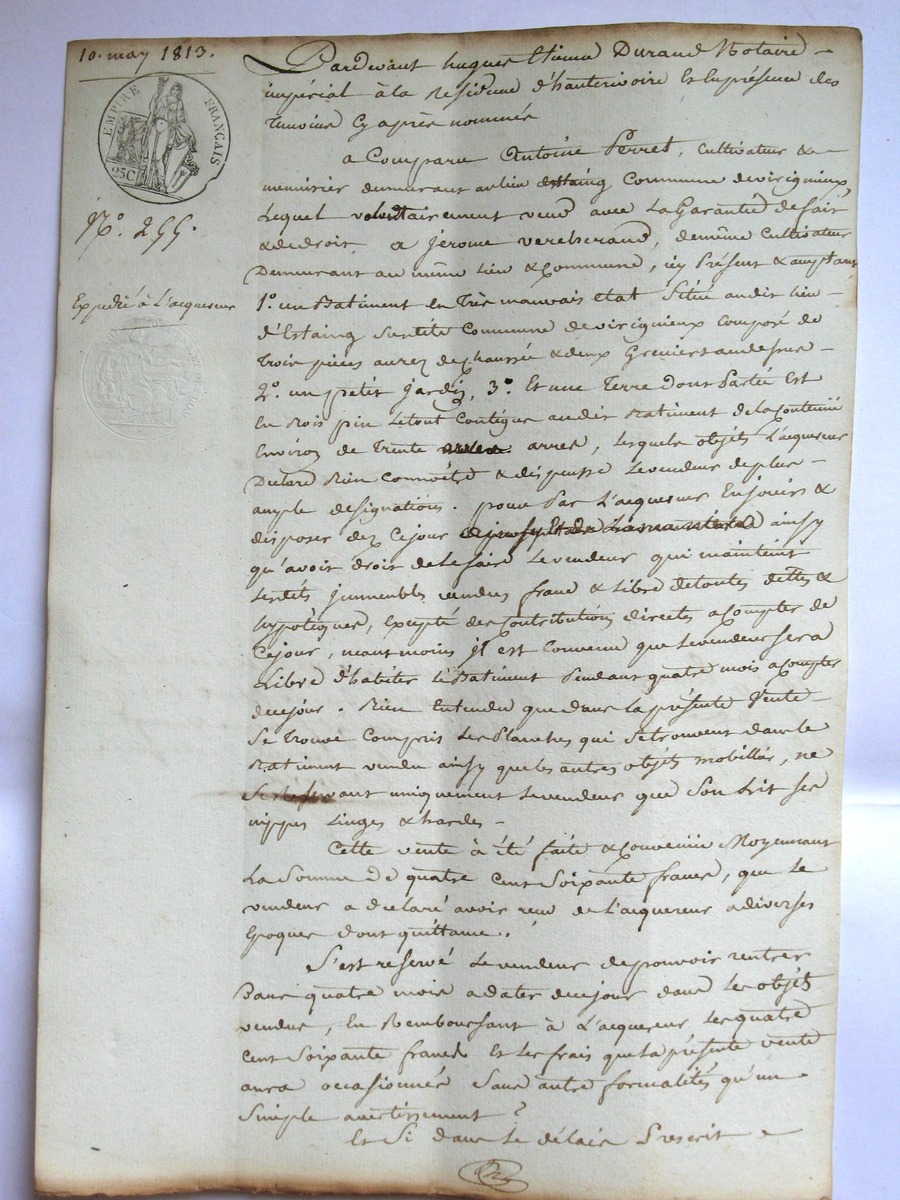 10. may 1813.
EMPIRE FRANÇAIS
25C
N.° 255.
Expédié à L'acquereur
Pardevant hugues Etienne Durand Notaire
impérial à la Residence d'hauterivoire Et En présence des
temoins Cy après nommés
a Comparu Antoine Perret, Cultivateur &
menuisier demeurant au lieu destaing Commune de virignieux,
Lequel volontairement vend avec La Garantie de fait
& de droit a jérome vereherand, de même Cultivateur
Demeurant au même Lieu & Commune, icy Présent & acceptant
1.° un Batiment en Très mauvais état Situé au dit lieu
d'Estaing Susdite Commune de virignieux Composé de
Trois pièces au rez de Chaussée & deux Greniers au dessus
2.° un petit jardin, 3.° Et une Terre dont Partie Est
En Bois pin Le tout Contigue au dit Batiment de la Contenue
Environ de Trente arres, lesquels objets L'acquereur
Déclare Bien Connoître & dispense Le vendeur de plus
ample désignation. pour Par L'acquereur En jouir &
disposer dez Cejour ainsy
qu'avoit droit de le faire Le vendeur qui maintient
Lesdits jmmeubles vendus franc & Libre de toutes dettes &
hypotèques, Excepté des Contributions directes a Compter de
Cejour, néantmoins jl est Convenu que Le vendeur Sera
Libre d'habiter Le Batiment Pendant quatre mois a Compter
de cejour. Bien Entendu que dans la présente Vente
Se Trouve Compris Les Planches qui Se trouvent dans le
Batiment vendu ainsy que les autres objets mobilliés, ne
Se réservant uniquement Le vendeur que Son Lit Ses
nippes Linges & hardes
Cette vente à été faite & Convenue Moyennant
La Somme De quatre Cent Soixante francs, que Le
vendeur a declaré avoir reçu de L'acquereur a diverses
Epoques dont quittance.
S'est reservé Le vendeur de pouvoir rentrer
Dans quatre mois a dater de cejour dans Les objets
vendus, En Remboursant à L'acquereur Les quatre
Cent Soixante francs Et Les frais que la présente vente
aura occasionnés Sans autre formalités qu'un
Simple avertissement
Et Si dans Le délais Prescrit